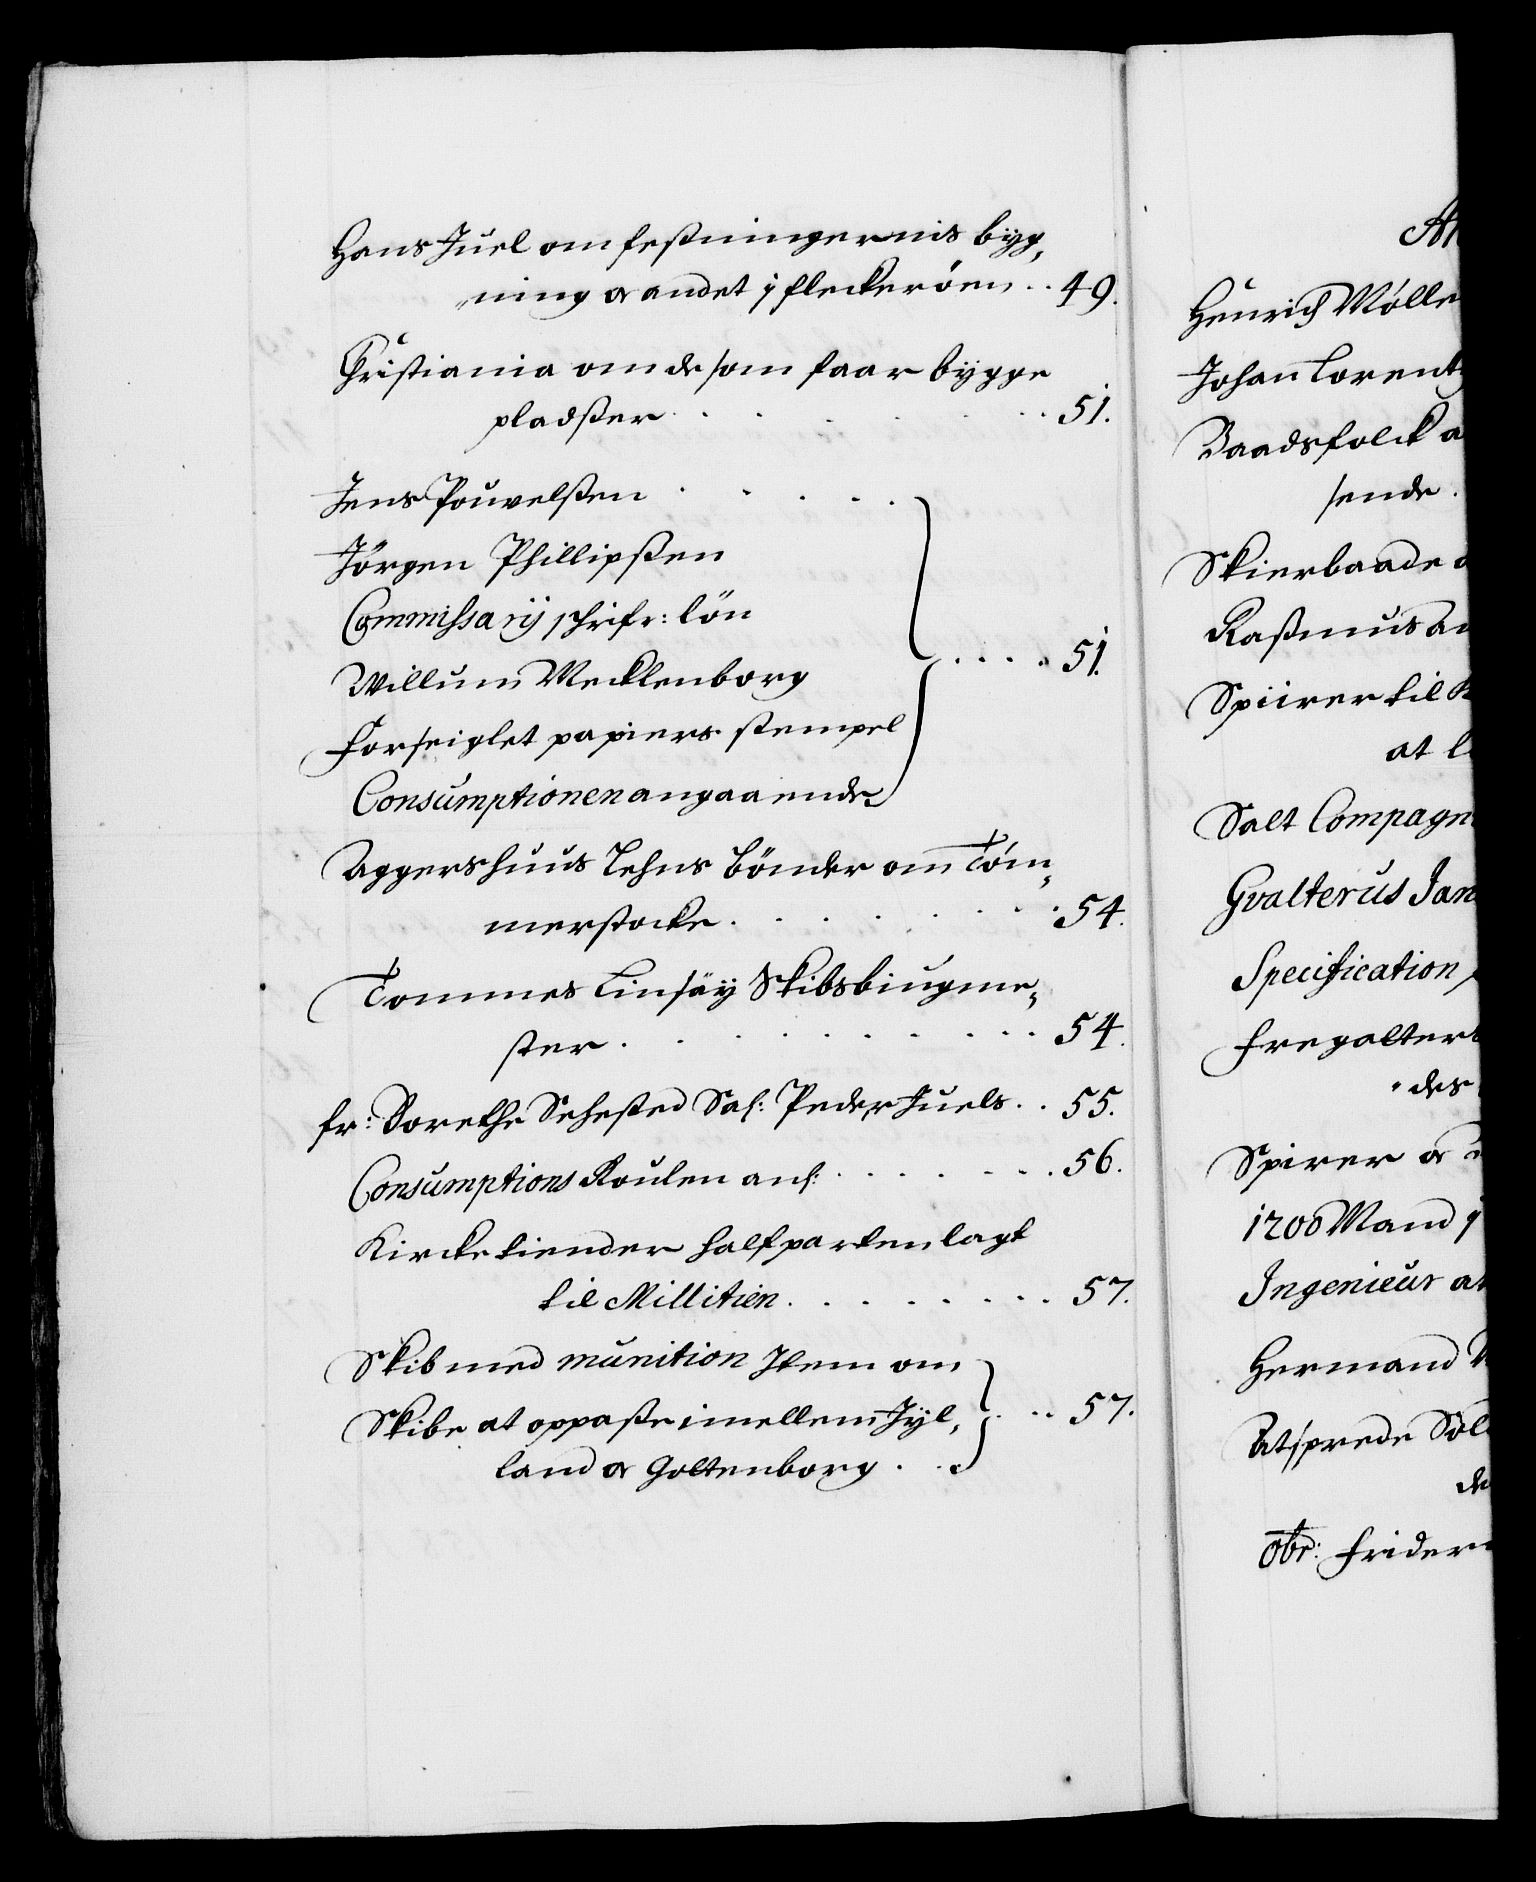 Hans Juel om festningernis byg,
„ning oc andet i fleckeröen .. 49.
Christiania om de som faar bygge
pladster . . . . . . . 51.
Jens Pouvelsten . . . . .
Jörgen Phillipsten
Commissarij schrifr: lön
Willum Mecklenborg . . . . 51.
Forseiglet papiers stempel
Consumptionen angaaende
Aggershuus Lehns bönder om Töm„
merstocke . . . . . . . 54.
Tommes Linsäy Skibsbiugme„
ster . . . . . . . . . 54.
fr: Dorethe Sehested Sal: Peder Juels .. 55.
Consumptions Roulen anl: . . . . . . . 56.
Kircketiender halfparten lagt
til Millitien . . . . . . . . 57.
Skib med munition Item om
Skibe at oppaste imellem Jyl, . .. 57.
land oc Gottenborg . .
An
Henrich Mölle
Johan Lorent
Baadsfolck a
sende .
Skierbaade
Rasmus An
Spiirer til
at l
Salt Compagn
Gvalterus Jan
Specification
Fregatter
„des
Spirer oc
1200 Mand i
Ingenieur at
Hermand
Atsprede Sol
de
Obr: Frider